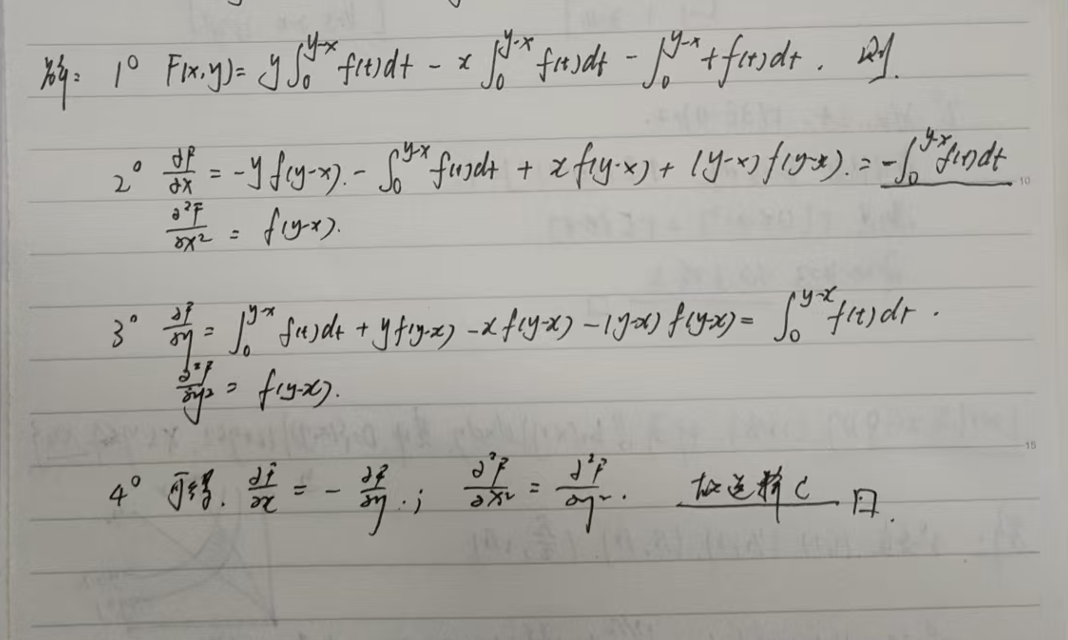 解: 1° F(x,y)= y∫₀^{y-x} f(t)dt - x∫₀^{y-x} f(t)dt - ∫₀^{y-x} t f(t)dt. 则.
2° ∂F/∂x = -y f(y-x). - ∫₀^{y-x} f(t)dt + x f(y-x) + (y-x) f(y-x). = -∫₀^{y-x} f(t)dt
∂²F/∂x² = f(y-x).
3° ∂F/∂y = ∫₀^{y-x} f(t)dt + y f(y-x) - x f(y-x) - (y-x) f(y-x) = ∫₀^{y-x} f(t)dt.
∂²F/∂y² = f(y-x).
4° 可得. ∂F/∂x = - ∂F/∂y.; ∂²F/∂x² = ∂²F/∂y². 故选择 C
10
15